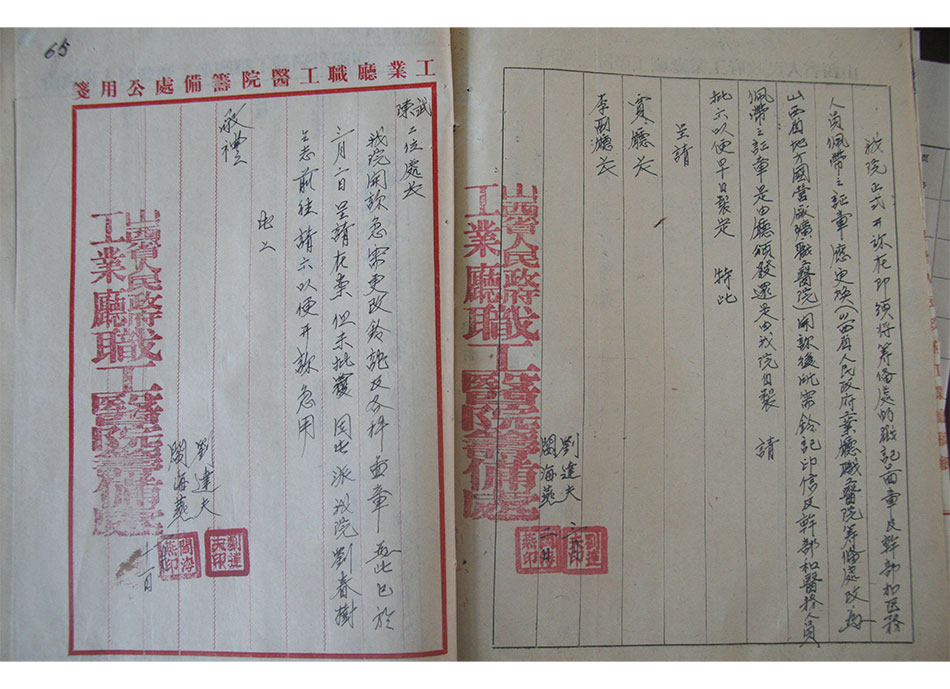 我院正式开诊在即须将筹备处的戳记面章及幹部和医務
人员佩带之証章应更换(山西省人民政府工業廳職工醫院筹備處改為
山西省地方國营廠礦職工醫院)開診後所需鈐記印信及幹部和醫務人員
佩带之証章是由廳頒發還是由我院自製 請
批示以便早日製定 特此
呈請
廳長
李副廳長
劉達夫
閻海燕
山西省人民政府
工業廳職工醫院籌備處
劉達夫印
閻海燕印
65
工業廳職工醫院籌備處公用箋
武
陳
二位處長
我院開診急需更改鈐記及各科面章 此已於
二月二日呈請在案 但未批覆 因此派我院劉春樹
同志前往請示以便开診急用
此上
敬禮
劉達夫
閻海燕
山西省人民政府
工業廳職工醫院籌備處
劉達夫印
閻海燕印